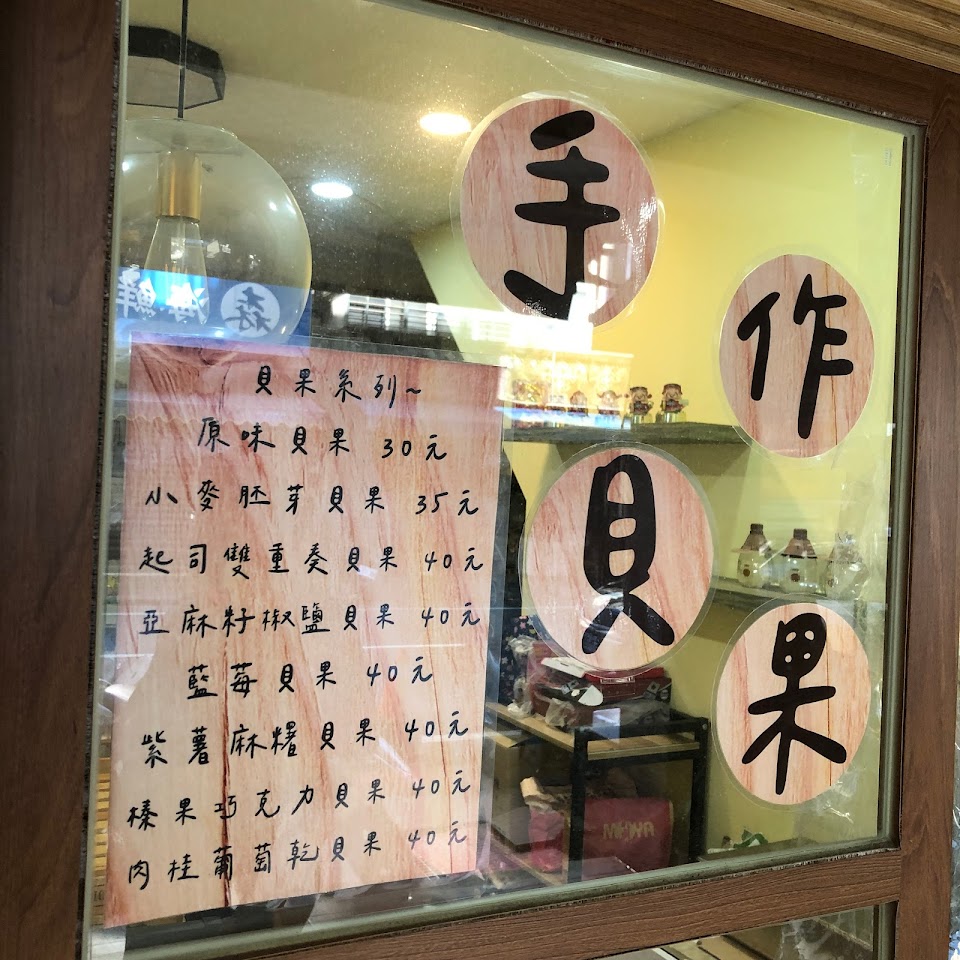 手作貝果
森 海鮮
貝果系列~
原味貝果 30元
小麥胚芽貝果 35元
起司雙重奏貝果 40元
亞麻籽椒鹽貝果 40元
藍莓貝果 40元
紫薯麻糬貝果 40元
榛果巧克力貝果 40元
肉桂葡萄乾貝果 40元